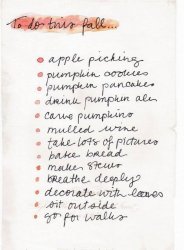 To do this fall...
apple picking
pumpkin cookies
pumpkin pancakes
drink pumpkin ale
carve pumpkins
mulled wine
take lots of pictures
bake bread
make stews
breathe deeply
decorate with leaves
sit outside
go for walks